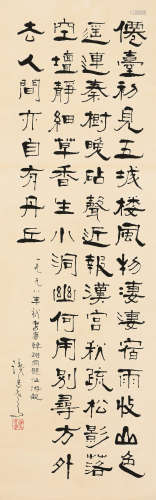 僊臺初見五城樓風物淒淒宿雨收山色
遥連秦樹晚砧聲近報漢宮秋疏松影落
空壇靜細草香生小洞幽何用別尋方外
去人間亦自有丹丘
一九九八年 書唐韓翃同題仙游觀